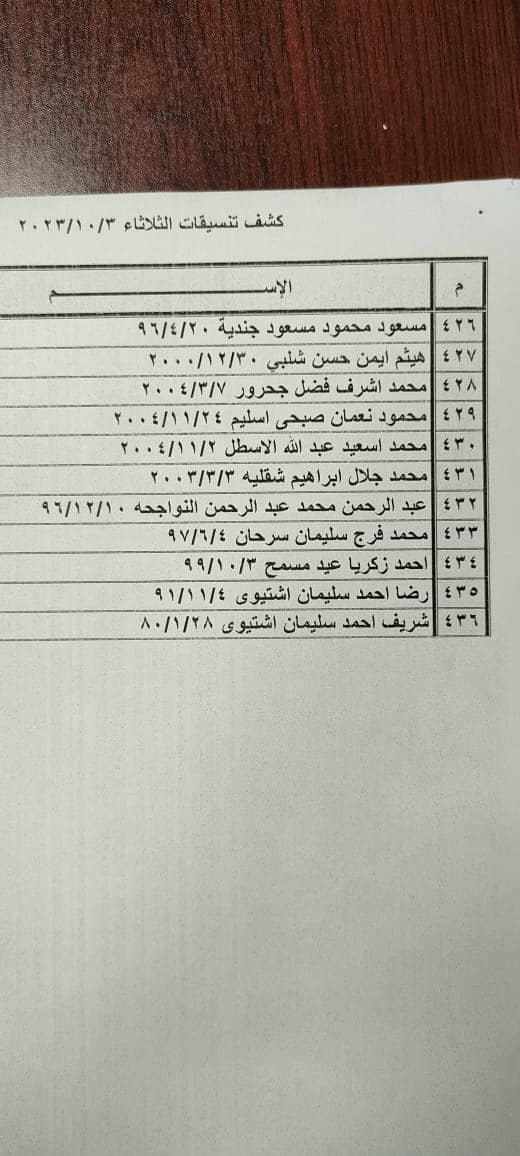 كشف تنسيقات الثلاثاء ٢٠٢٣/١٠/٣
م الإســـــــــــم
٤٢٦ مسعود محمود مسعود جندية ٩٦/٤/٢٠
٤٢٧ هيثم ايمن حسن شلبي ٢٠٠٠/١٢/٣٠
٤٢٨ محمد اشرف فضل جحرور ٢٠٠٤/٣/٧
٤٢٩ محمود نعمان صبحى اسليم ٢٠٠٤/١١/٢٤
٤٣٠ محمد اسعيد عبد الله الاسطل ٢٠٠٤/١١/٢
٤٣١ محمد جلال ابراهيم شقليه ٢٠٠٣/٣/٣
٤٣٢ عبد الرحمن محمد عبد الرحمن النواجحه ٩٦/١٢/١٠
٤٣٣ محمد فرج سليمان سرحان ٩٧/٦/٤
٤٣٤ احمد زكريا عيد مسمح ٩٩/١٠/٣
٤٣٥ رضا احمد سليمان اشتيوى ٩١/١١/٤
٤٣٦ شريف احمد سليمان اشتيوى ٨٠/١/٢٨